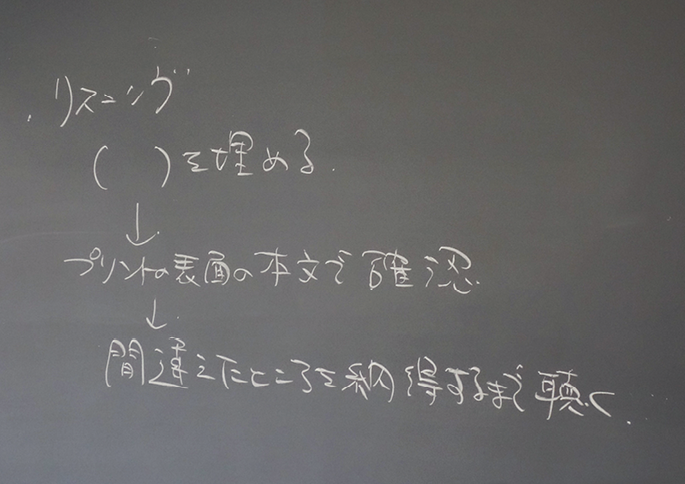 ・リスニング
( )を埋める.
↓
プリントの表面の本文で確認
↓
間違えたところを納得するまで聴く.